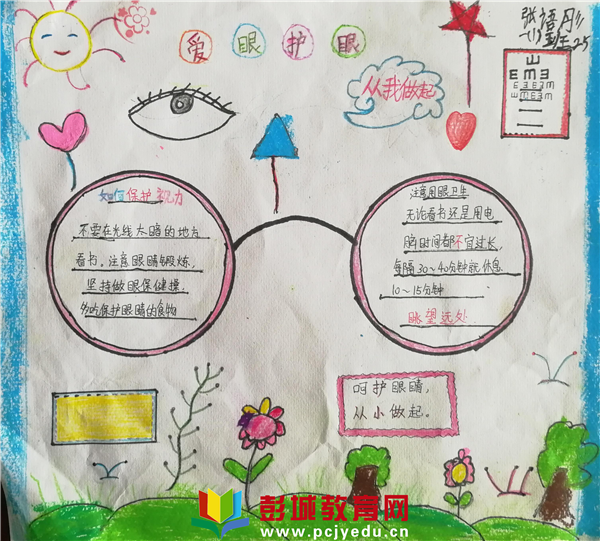 爱眼护眼
从我做起
张语彤
一(1)班25
山
E M E
E E E M
如何保护视力
不要在光线太暗的地方
看书。注意眼睛锻炼,
坚持做眼保健操,
多吃保护眼睛的食物
注意用眼卫生
无论看书还是用电
脑时间都不宜过长,
每隔30~40分钟就休息
10~15分钟
眺望远处
呵护眼睛,
从小做起。
彭城教育网
www.pcjyedu.cn